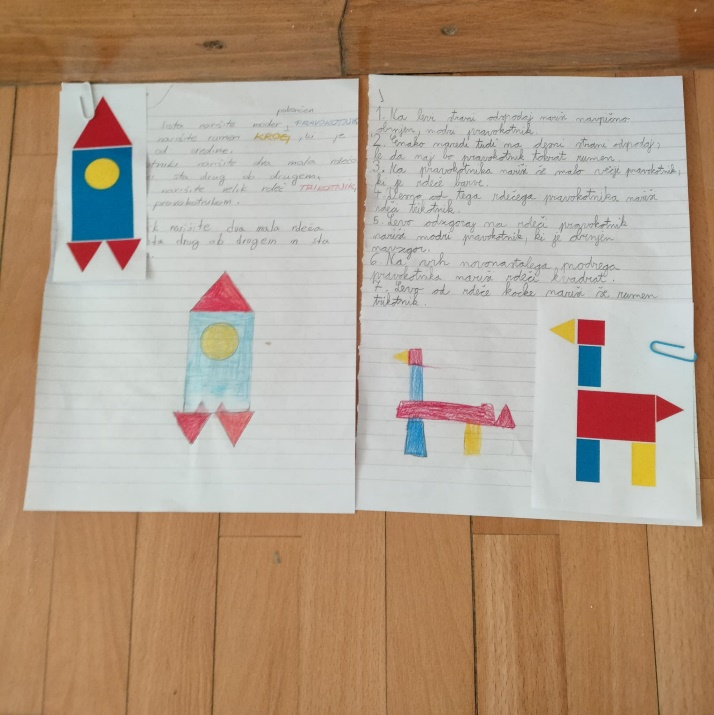 pokončen
lista narišite moder, PRAVOKOTNIK
narišite rumen KROG, ki je
od sredine.
narišite dva mala rdeča
sta drug ob drugem.
narišite velik rdeč TRIKOTNIK,
pravokotnikom.
narišite dva mala rdeča
sta drug ob drugem in sta
1. Na levi strani odspodaj nariši navpično
obrnjen, modri pravokotnik.
2. Enako naredi tudi na desni strani odspodaj,
le da naj bo pravokotnik tokrat rumen.
3. Na pravokotnika nariši še malo večje pravokotnik,
ki je rdeče barve.
4. Desno od tega rdečega pravokotnika nariši
rdeči trikotnik.
5. Levo odzgoraj na rdeči pravokotnik
nariši modri pravokotnik, ki je obrnjen
navzgor.
6. Na vrh novonastalega modrega
pravokotnika nariši rdeči kvadrat.
7. Levo od rdeče kocke nariši še rumen
trikotnik.